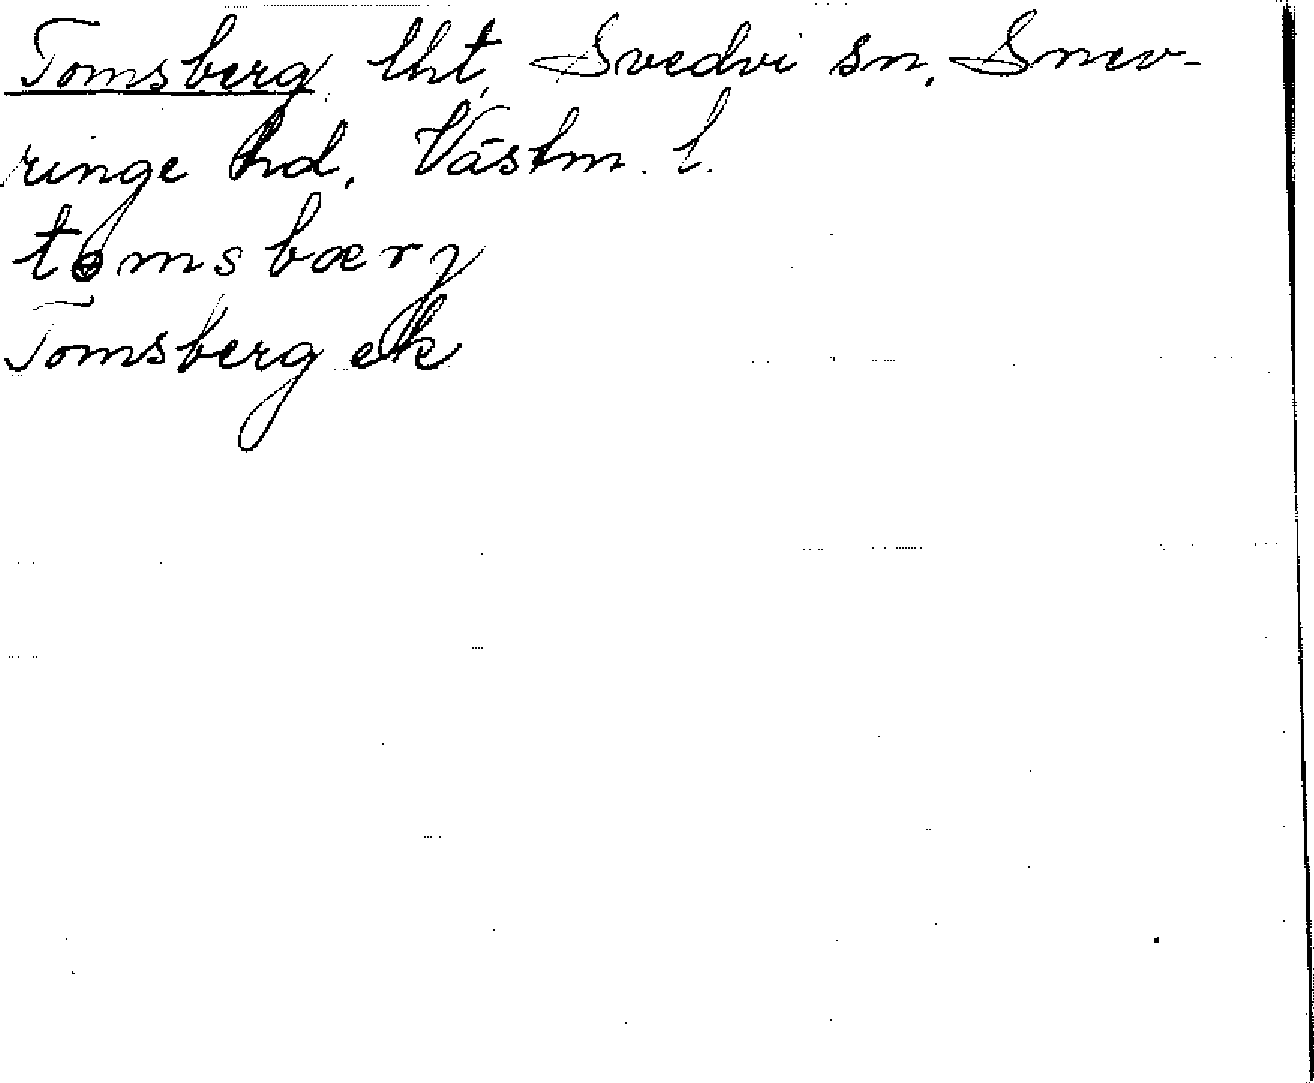 Tomsberg lht, Svedvi sn, Snev-
ringe hd, Västm. l.
tomsbærj
Tomsberg ek